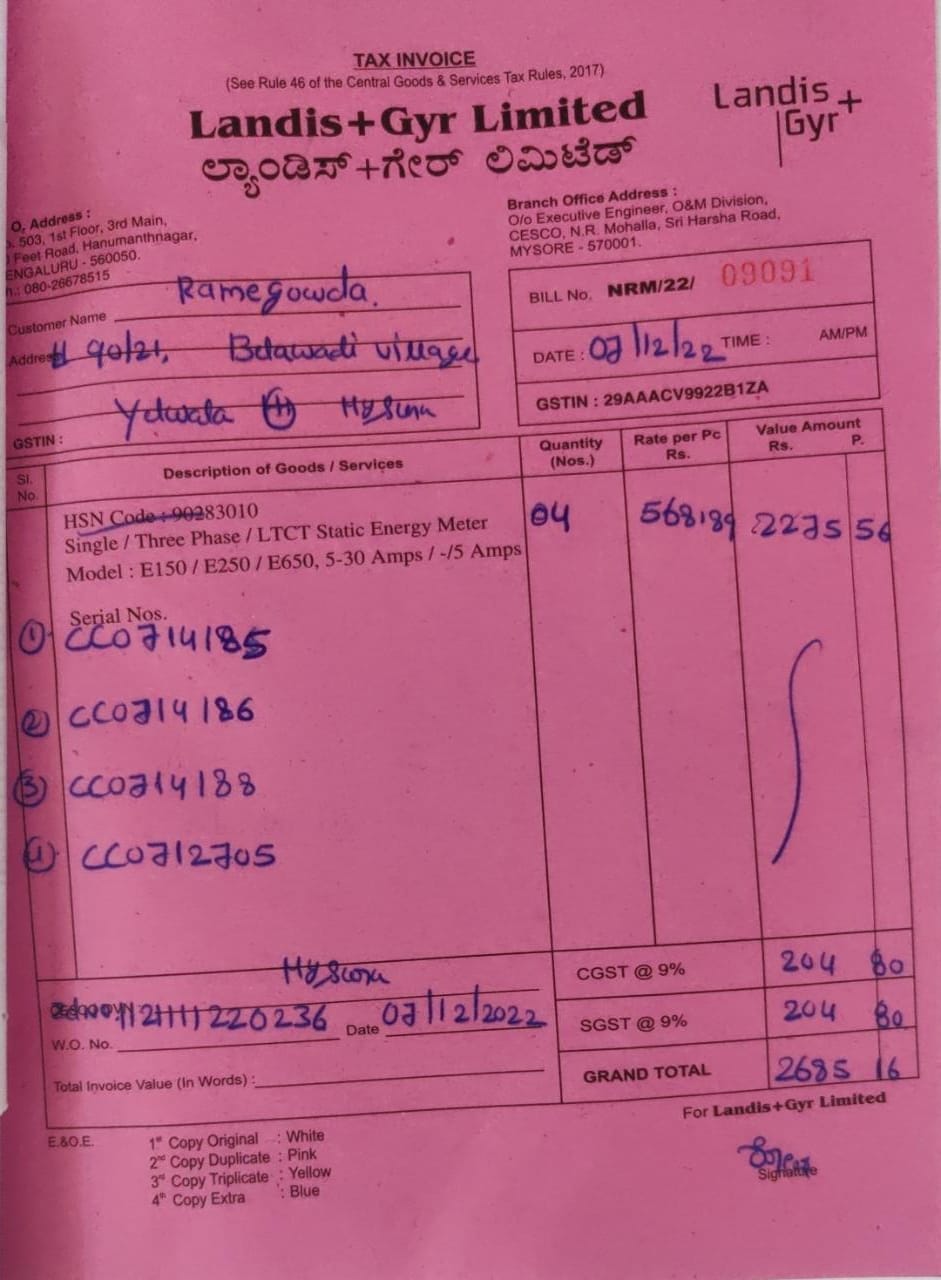 TAX INVOICE
(See Rule 46 of the Central Goods & Services Tax Rules, 2017)
Landis+Gyr Limited
ಲ್ಯಾಂಡಿಸ್+ಗೇರ್ ಲಿಮಿಟೆಡ್
Landis
Gyr+
O, Address :
503, 1st Floor, 3rd Main,
Feet Road, Hanumanthnagar,
ENGALURU - 560050.
080-26678515
Branch Office Address :
O/o Executive Engineer, O&M Division,
CESCO, N.R. Mohalla, Sri Harsha Road,
MYSORE - 570001.
Customer Name Ramegowda.
Address # 90/21, Belawadi village
Yelwala (H) Mysuru
GSTIN :
BILL No. NRM/22/ 09091
DATE : 07/12/22 TIME : AM/PM
GSTIN : 29AAACV9922B1ZA
Sl. No. Description of Goods / Services Quantity (Nos.) Rate per Pc Rs. Value Amount Rs. P.
HSN Code : 90283010
Single / Three Phase / LTCT Static Energy Meter
Model : E150 / E250 / E650, 5-30 Amps / -/5 Amps
04 568.89 2275 56
Serial Nos.
1 CC0714185
2 CC0714186
3 CC0714188
4 CC0712705
Mysuru
12111220236
W.O. No. Date 07/12/2022
Total Invoice Value (In Words) :
CGST @ 9% 204 80
SGST @ 9% 204 80
GRAND TOTAL 2685 16
For Landis+Gyr Limited
Signature
E.&O.E.
1st Copy Original : White
2nd Copy Duplicate : Pink
3rd Copy Triplicate : Yellow
4th Copy Extra : Blue